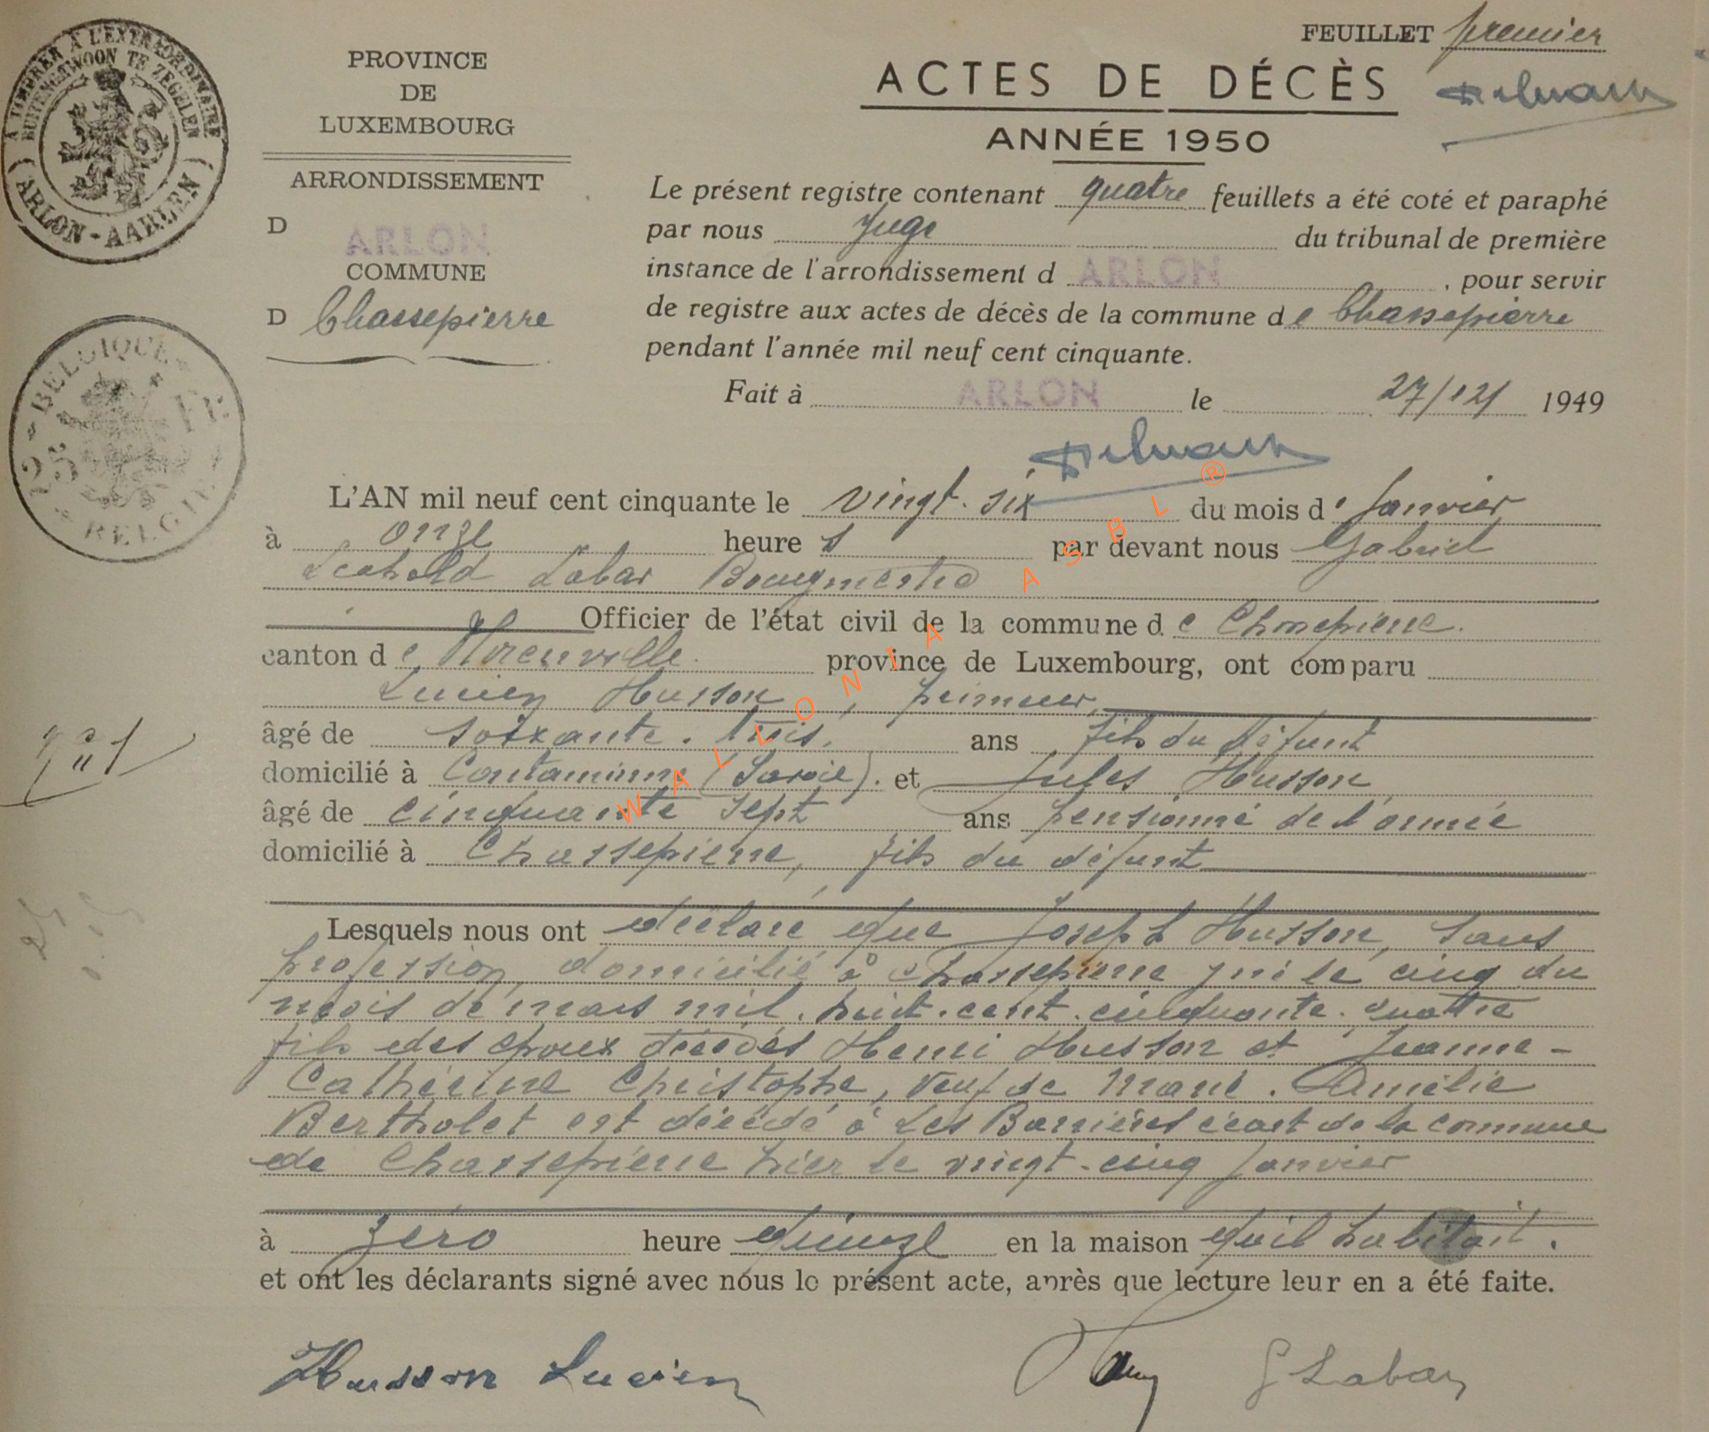 À TIMBRER À L'EXTRAORDINAIRE
BUITENGEWOON TE ZEGELEN
ARLON-AARLEN
FEUILLET premier
PROVINCE
DE
LUXEMBOURG
ACTES DE DÉCÈS
ANNÉE 1950
ARRONDISSEMENT
D ARLON
COMMUNE
D Chassepierre
BELGIQUE
BELGIE
Le présent registre contenant quatre feuillets a été coté et paraphé
par nous Juge du tribunal de première
instance de l'arrondissement d ARLON, pour servir
de registre aux actes de décès de la commune de Chassepierre
pendant l'année mil neuf cent cinquante.
Fait à ARLON le 27/12/ 1949
L'AN mil neuf cent cinquante le vingt-six du mois de Janvier
à onze heure s par devant nous Gabriel
Léopold Labar Bourgmestre
Officier de l'état civil de la commune de Chassepierre.
canton de Florenville. province de Luxembourg, ont comparu
Lucien Husson,
âgé de soixante-trois. ans fils du défunt
domicilié à Contamine (Savoie). et Jules Husson,
âgé de cinquante sept ans pensionné de l'armée
domicilié à Chassepierre, fils du défunt
n° 1
Lesquels nous ont déclaré que Joseph Husson, sans
profession, domicilié à Chassepierre né le cinq du
mois de mars mil-huit-cent-cinquante-quatre
fils des époux décédés Henri Husson et Jeanne-
Catherine Christophe, veuf de Marie-Amélie
Bertholet est décédé à Les Barrières écart de la commune
de Chassepierre hier le vingt-cinq Janvier
à zéro heure quinze en la maison qu'il habitait.
et ont les déclarants signé avec nous le présent acte, après que lecture leur en a été faite.
Husson Lucien
G Labar
WALLONIA ASBL ®